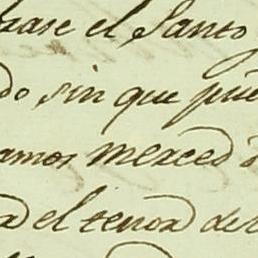 ase el Santo
do sin que pue
amos merced
el tenor del